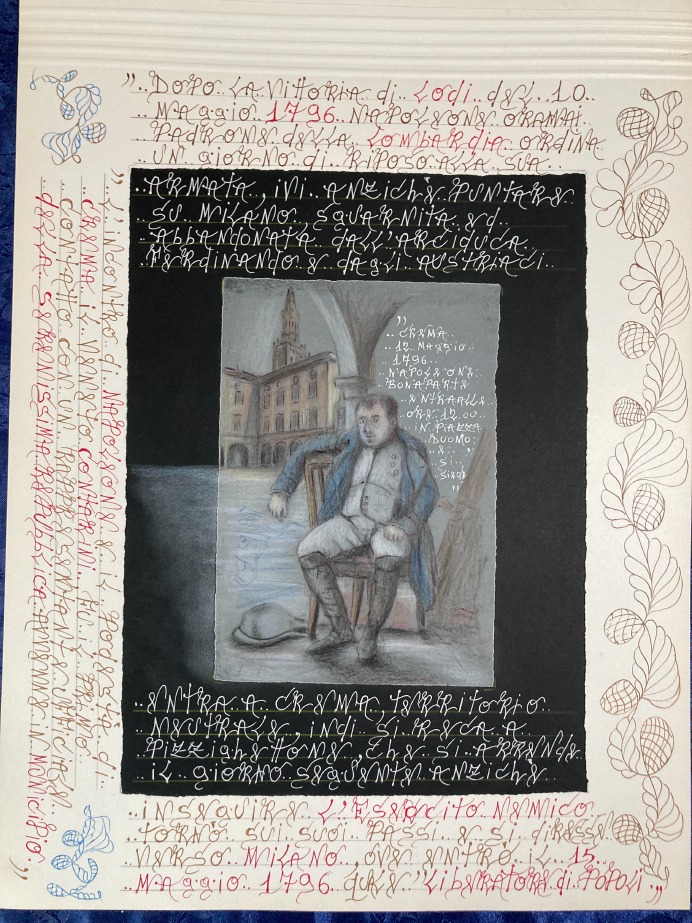 "..DOPO LA Vittoria di.. Lodi del ..10..
..MAggio 1796 NAPOLEONE ORAMAI
PADRONE DELLA.. LOMBARDIA ORDINA
..UN giorno di RIPOSO ALLA SUA..
..ARMATA, IVI ANZICHÈ PUNTARE
SU MILANO SGUARNITA ED..
AbbANDONATA dALL'ARCIDUCA..
FERDINANDO E dAgli AUSTRIACI..
"
CREMA..
12 MAggio..
1796..
NAPOLEONE
BONAPARTE
ENTRA ALLE..
ORE 12.00..
IN PIAZZA
DUOMO:
E..
Si..
SIEDE
"
..ENTRA A CREMA, TERRITORIO
NEUTRALE, indi Si RECA A
PIZZIGHETTONE, CHE Si ARRENDE
..IL giorno SEGUENTE ANZICHÈ
..INSEGUIRE L'ESERCITO NEMICO..
TORNO SUI SUOI PASSI E Si DIRESSE
VERSO MILANO, OVE ENTRÒ IL 15..
MAggio 1796 QUALE "LIBERATORE di POPOLI"
" L'INCONTRO di NAPOLEONE E IL PODESTÀ di..
CREMA IL VENETO CONTARINI. FU IL PRIMO
CONTATTO CON UN RAPPRESENTANTE UFFICIALE
dELLA SERENISSIMA REPUBLICA AVVENNE IN MUNICIPIO "